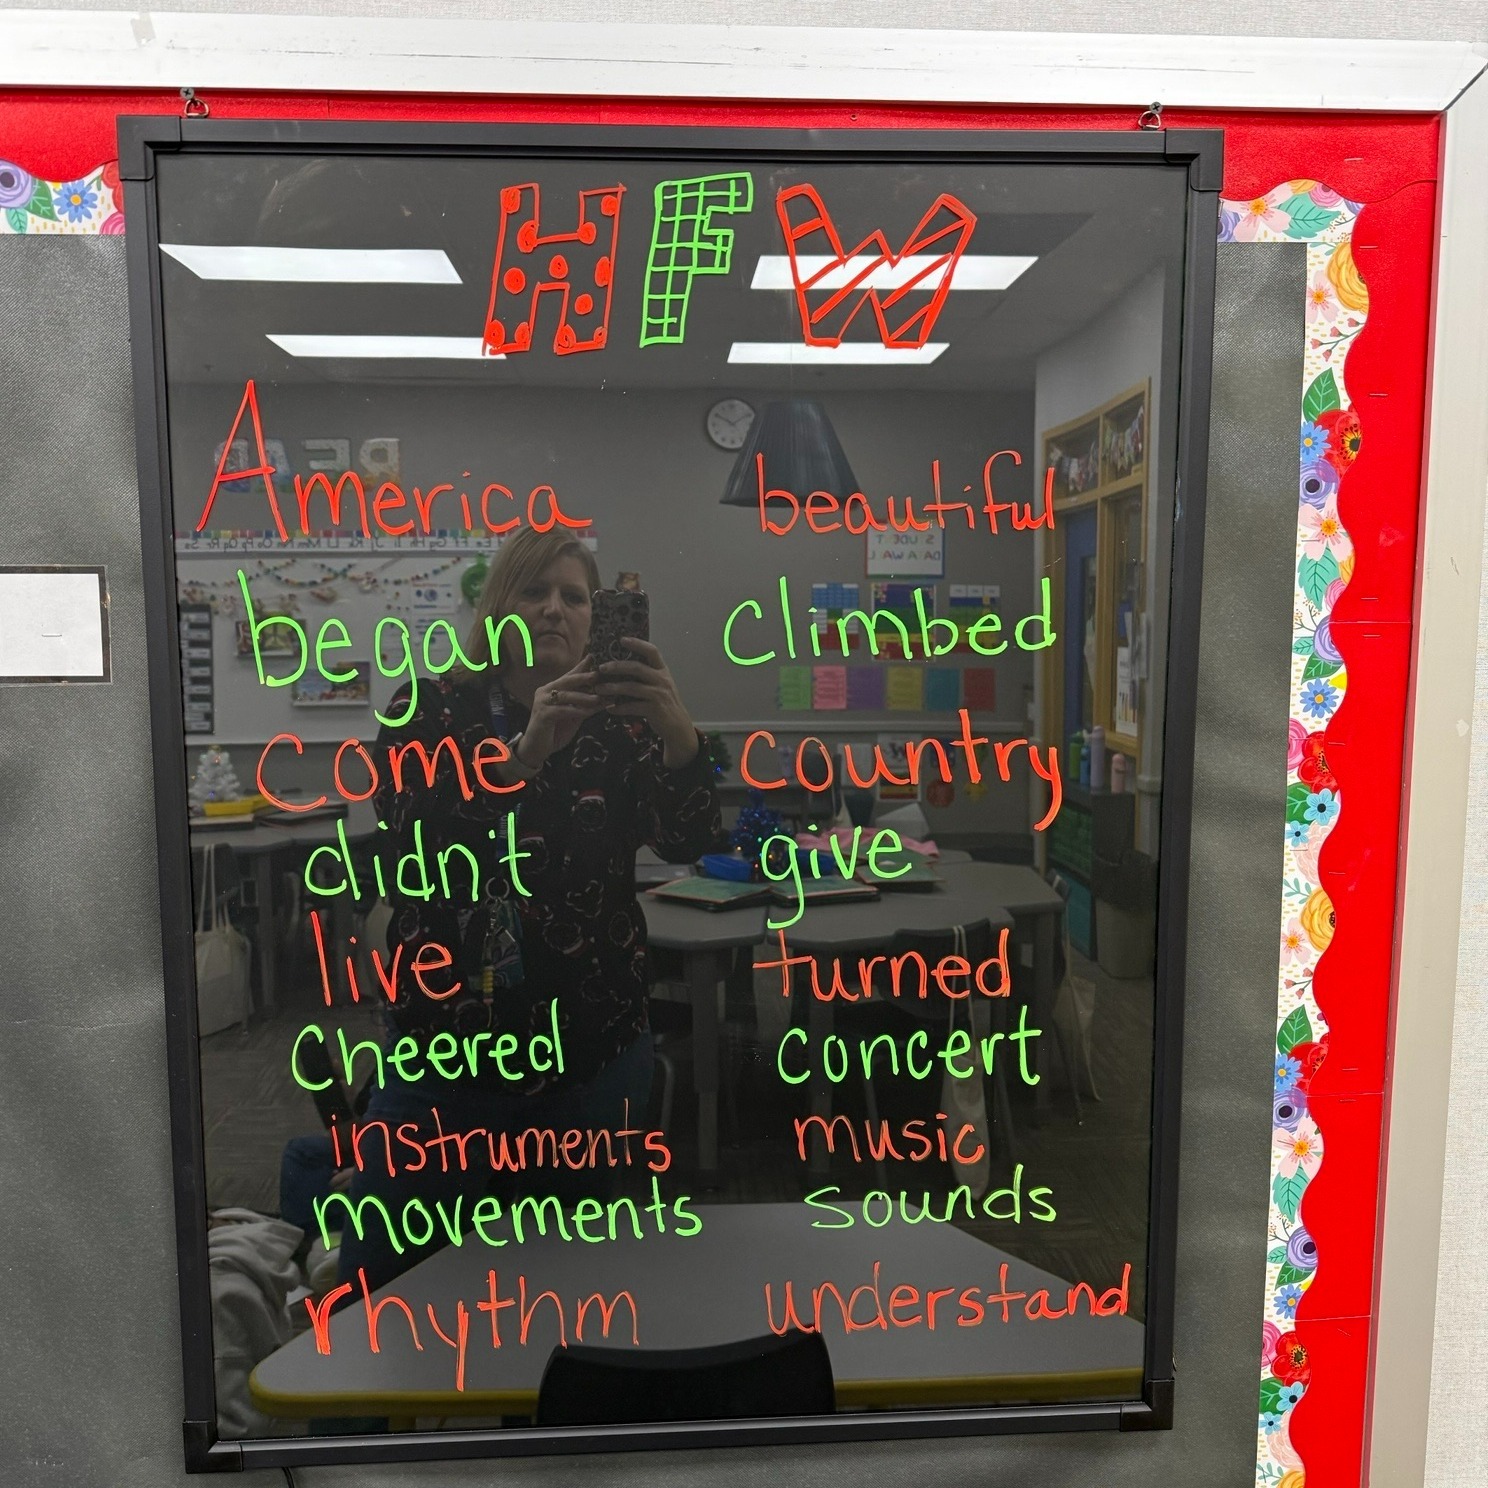 HFW
America beautiful
began climbed
come country
didn't give
live turned
cheered concert
instruments music
movements sounds
rhythm understand
READ
STUDENT
DATA WALL